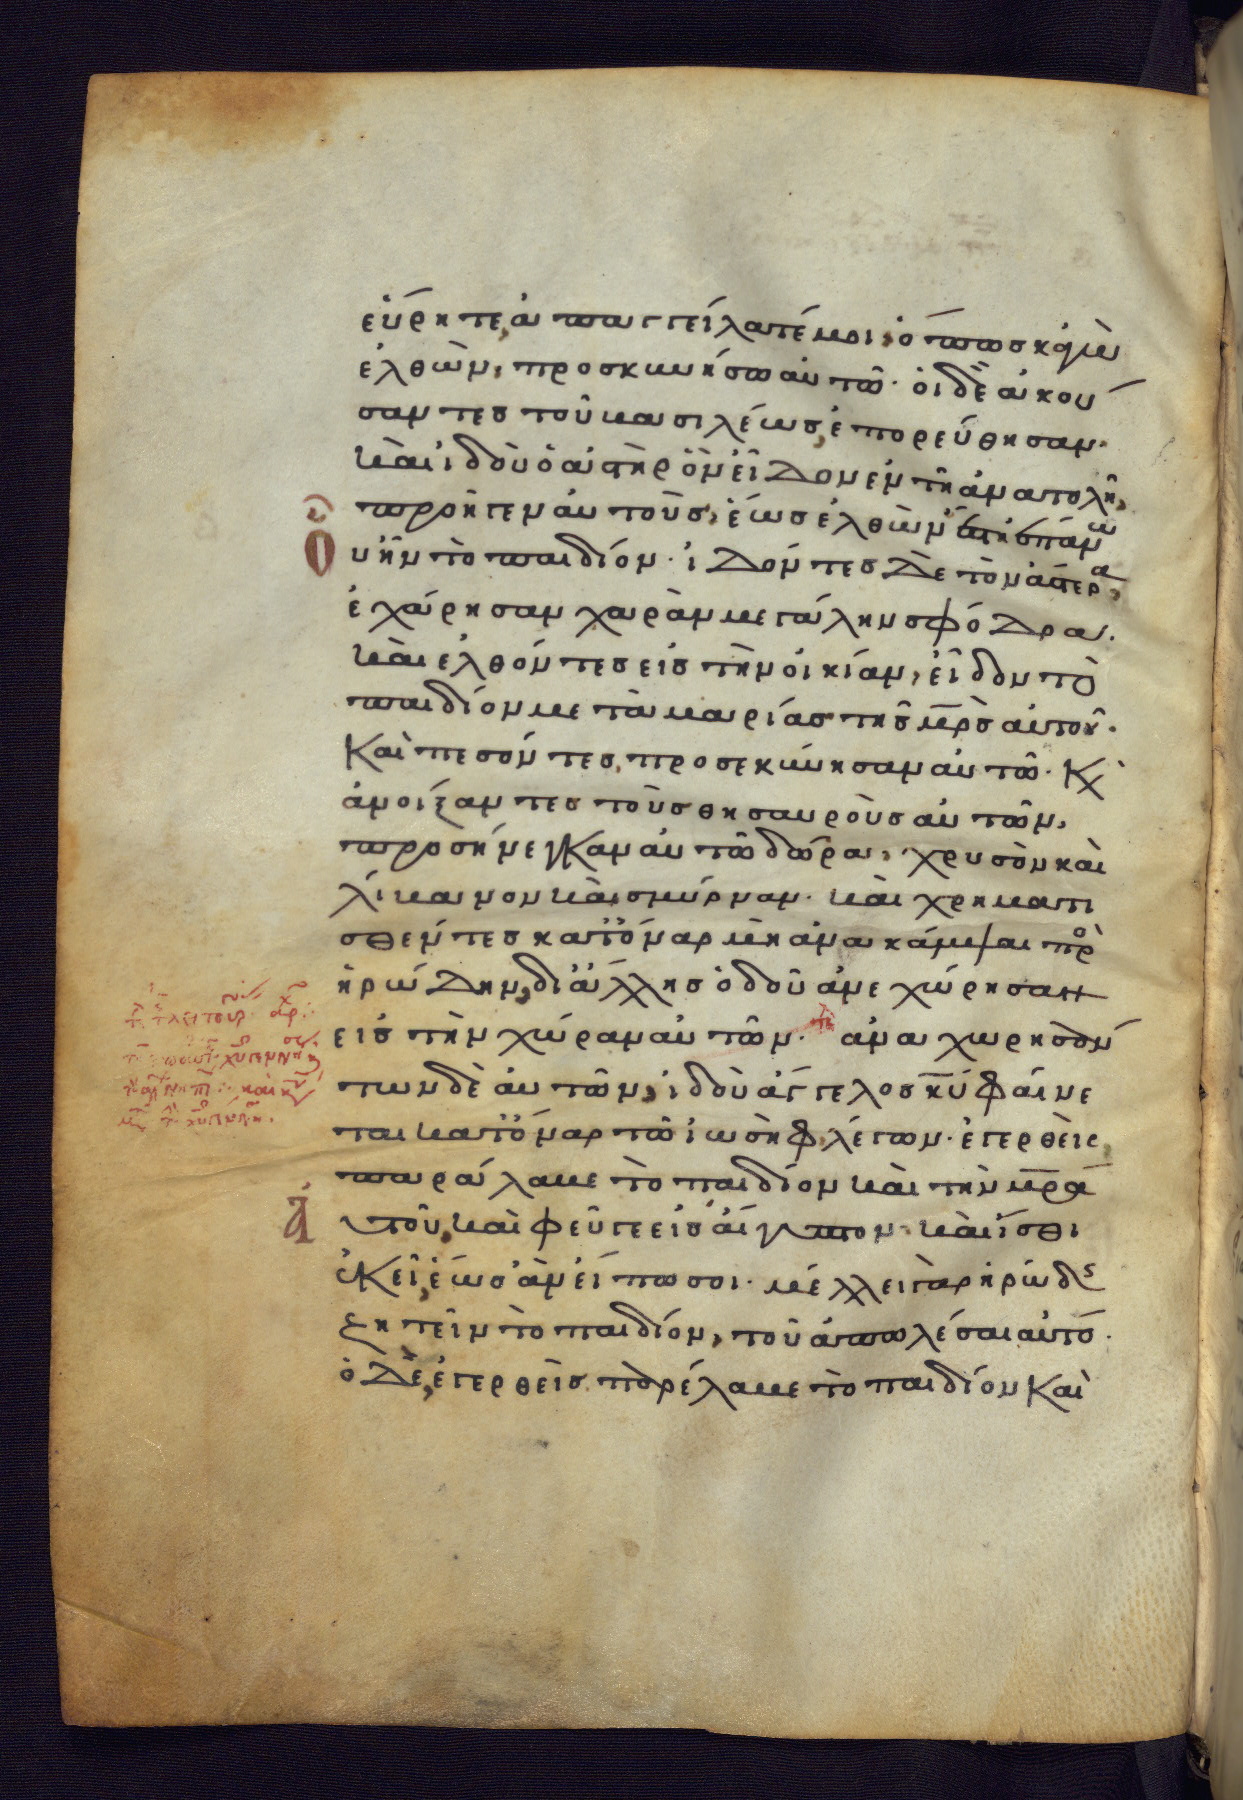 εὕρητε, ἀπαγγείλατέ μοι, ὅπως κἀγὼ
ἐλθὼν, προσκυνήσω αὐτῶ· οἱ δὲ ἀκού
σαντες τοῦ βασιλέως, ἐπορεύθησαν·
καὶ ἰδοὺ ὁ ἀστὴρ ὃν εἶδον ἐν τῆ ἀνατολῆ,
προῆγεν αὐτοὺς, ἕως ἐλθὼν ἔστη ἐπάνω
οὗ ἦν τὸ παιδίον· ἰδόντες δὲ τὸν ἀστέρα,
ἐχάρησαν χαρὰν μεγάλην σφόδρα.
καὶ ἐλθόντες εἰς τὴν οἰκίαν, εἶδον τὸ
παιδίον μετὰ μαρίας τῆς μρὸς αὐτοῦ·
Καὶ πεσόντες, προσεκύνησαν αὐτῶ· Κ
ἀνοίξαντες τοὺς θησαυροὺς αὐτῶν,
προσήνεγκαν αὐτῶ δῶρα, χρυσὸν καὶ
λίβανον καὶ σμύρναν· καὶ χρηματι
σθέντες κατόναρ μὴ ἀνακάμψαι πρὸ
ἡρώδην, δι ἄλλης ὁδοῦ ἀνεχώρησαν
εἰς τὴν χώραν αὐτῶν· τε ἀναχωρησάν
των δὲ αὐτῶν, ἰδοὺ ἄγγελος κύ φαίνε
ται κατόναρ τῶ ἰωσὴφ, λέγων· ἐγερθεὶς
παράλαβε τὸ παιδίον καὶ τὴν μρα
ἀυτοῦ, καὶ φεῦγε εἰς αἴγυπτον· καὶ ἴσθι
ἐκεῖ, ἕως ἂν εἴπω σοι· μέλλει γὰρ ἡρώδς
ζητεῖν τὸ παιδίον, τοῦ ἀπολέσαι αὐτό·
ὁ δὲ, ἐγερθεὶς παρέλαβε τὸ παιδίον καὶ